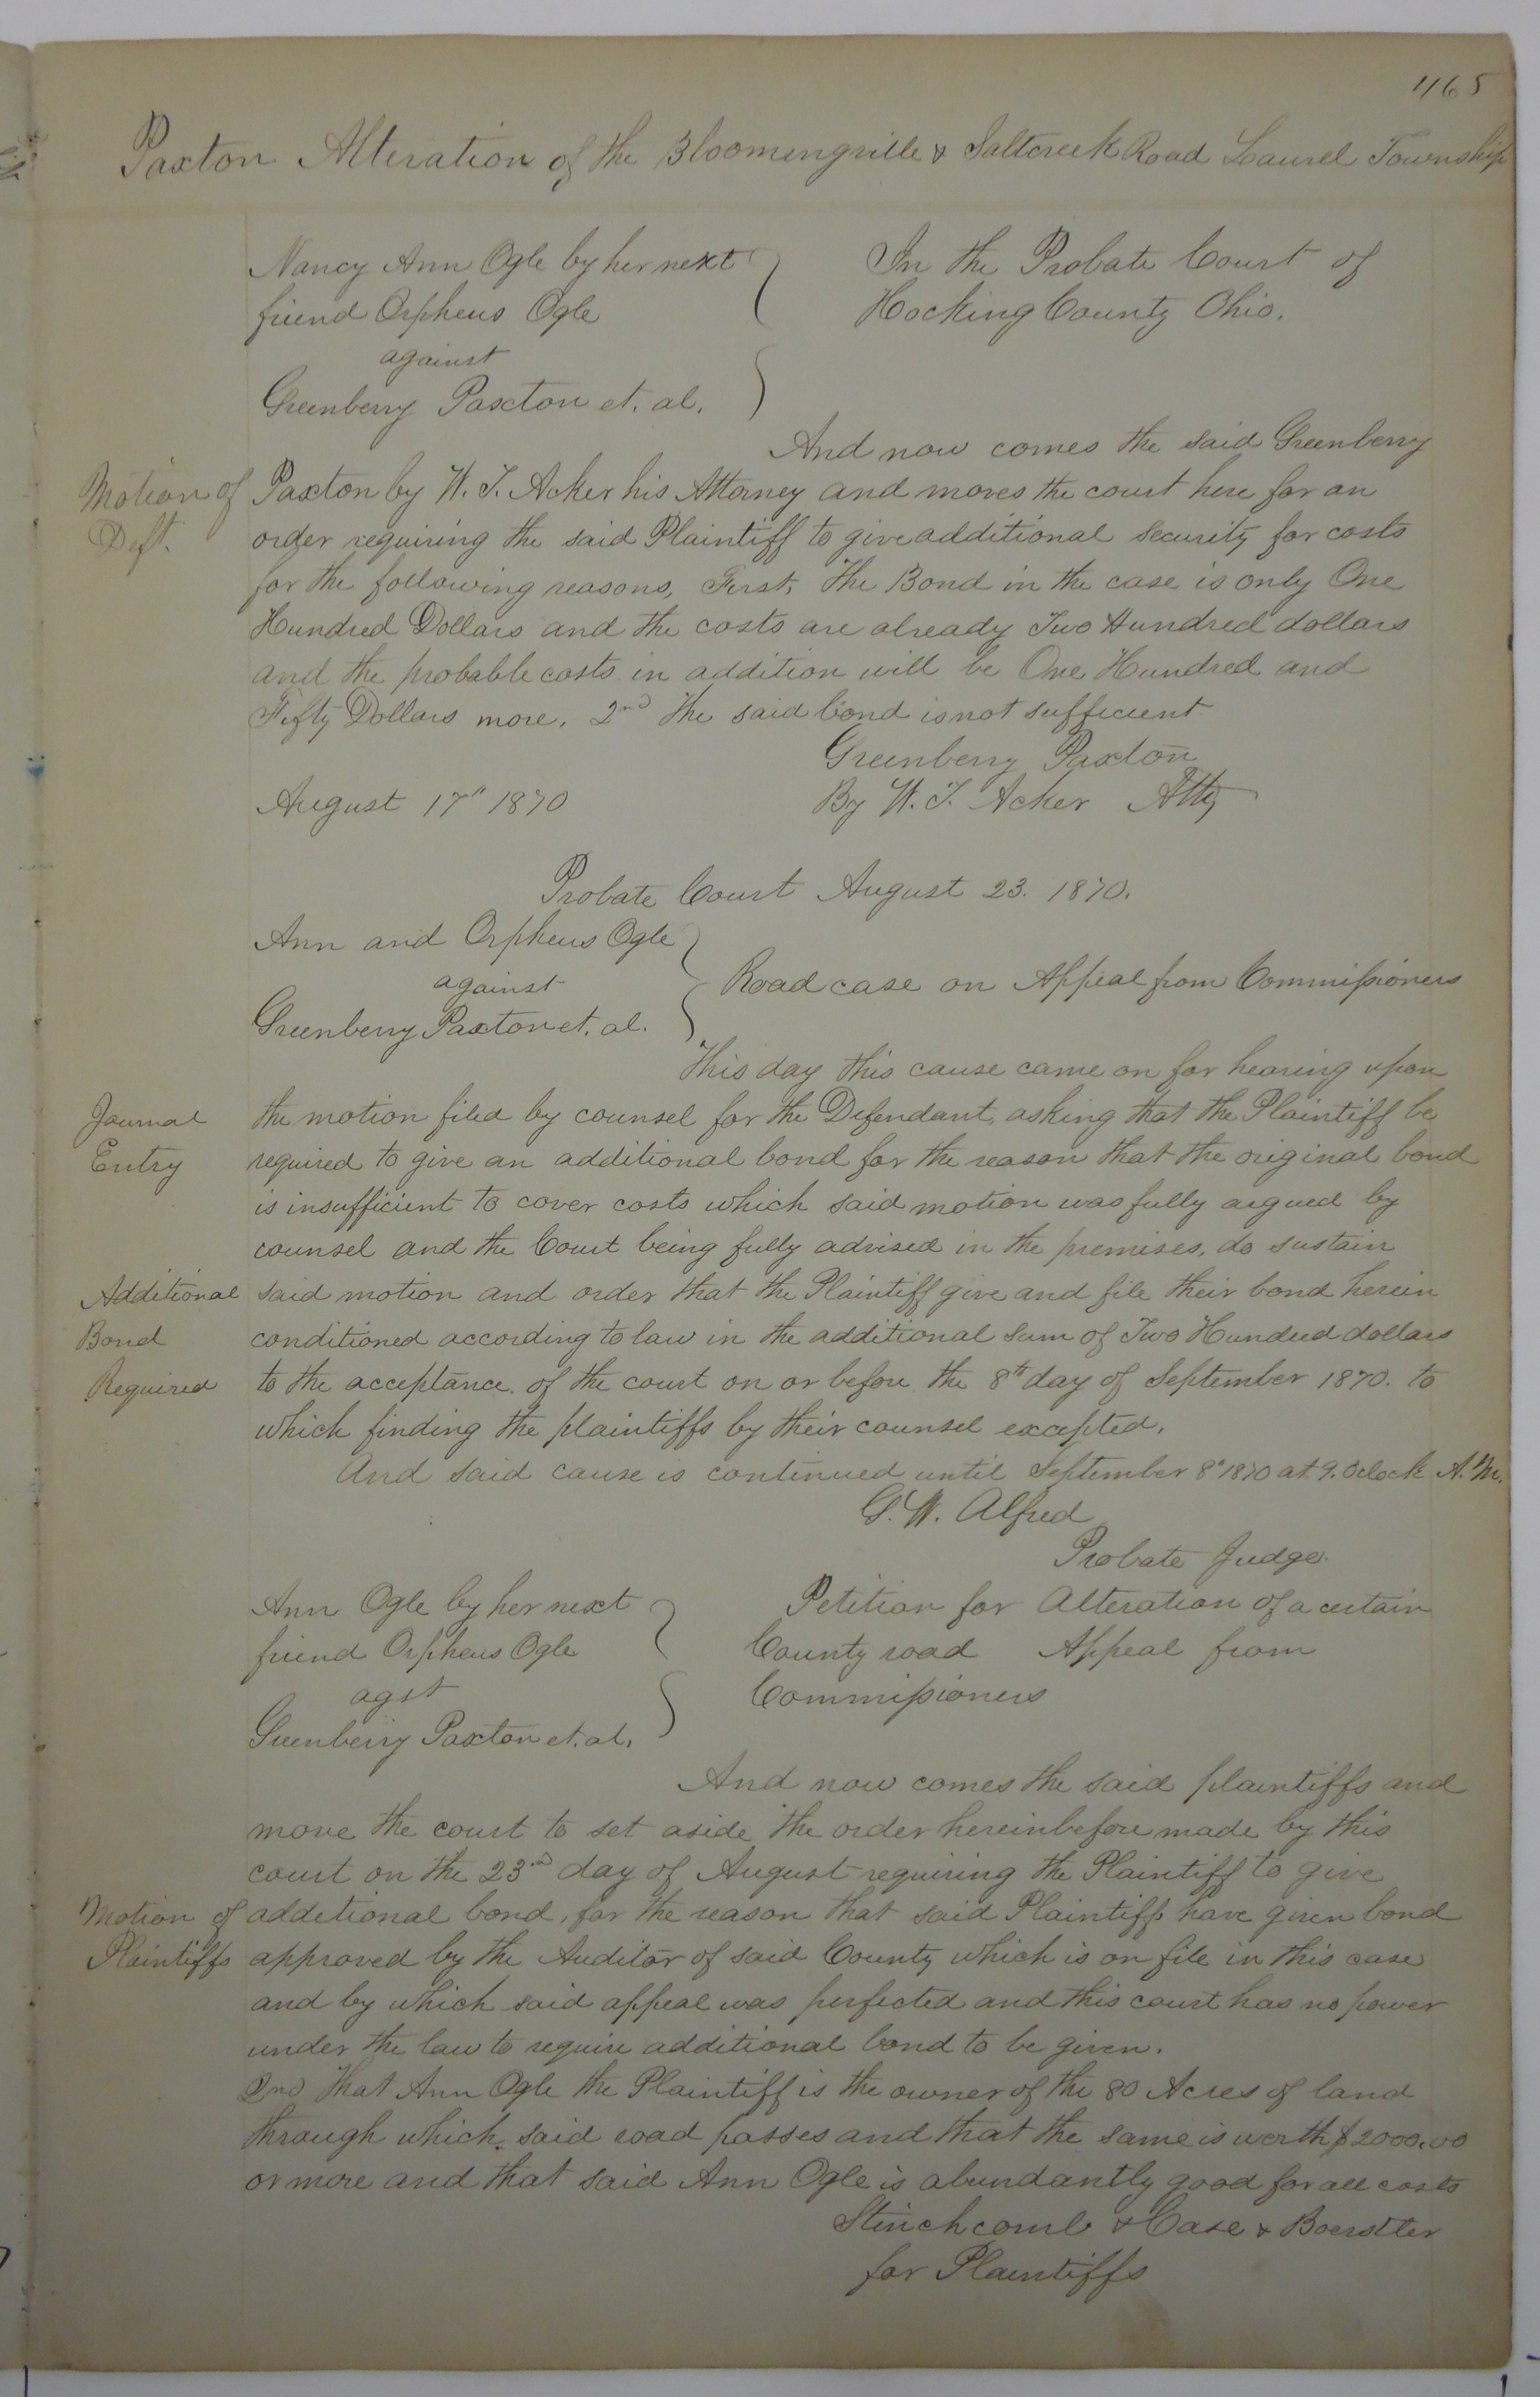 465
Paxton Alteration of the Bloomingville & Saltcreek Road Laurel Township
Nancy Ann Ogle by her next
friend Orpheus Ogle
against
Greenberry Paxton et. al.
In the Probate Court of
Hocking County Ohio.
And now comes the said Greenberry
Motion of
Deft.
Paxton by W. T. Acker his Attorney and moves the court here for an
order requiring the said Plaintiff to give additional security for costs
for the following reasons, First, The Bond in the case is only One
Hundred Dollars and the costs are already Two Hundred dollars
and the probable costs in addition will be One Hundred and
Fifty Dollars more. 2nd The said bond is not sufficient
Greenberry Paxton
August 17" 1870
By W. T. Acker Atty
Probate Court August 23. 1870.
Ann and Orpheus Ogle
against
Greenberry Paxton et. al.
Road case on Appeal from Commissioners
This day this cause came on for hearing upon
Journal
Entry
the motion filed by counsel for the Defendant, asking that the Plaintiff be
required to give an additional bond for the reason that the original bond
is insufficient to cover costs which said motion was fully argued by
counsel and the Court being fully advised in the premises, do sustain
Additional
Bond
Required
said motion and order that the Plaintiff give and file their bond herein
conditioned according to law in the additional sum of Two Hundred dollars
to the acceptance of the court on or before the 8th day of September 1870. to
which finding the plaintiffs by their counsel excepted.
And said cause is continued until September 8" 1870 at 9. Oclock A.M.
G. W. Alfred
Probate Judge
Ann Ogle by her next
friend Orpheus Ogle
agst
Greenberry Paxton et. al.
Petition for Alteration of a certain
County road Appeal from
Commissioners
And now comes the said plaintiffs and
move the court to set aside the order hereinbefore made by this
court on the 23rd day of August requiring the Plaintiff to give
Motion of
Plaintiffs
additional bond, for the reason that said Plaintiffs have given bond
approved by the Auditor of said County which is on file in this case
and by which said appeal was perfected and this court has no power
under the law to require additional bond to be given.
2nd That Ann Ogle the Plaintiff is the owner of the 80 Acres of land
through which said road passes and that the same is worth $2000.00
or more and that said Ann Ogle is abundantly good for all costs
Stinchcomb & Case & Boerstler
for Plaintiffs